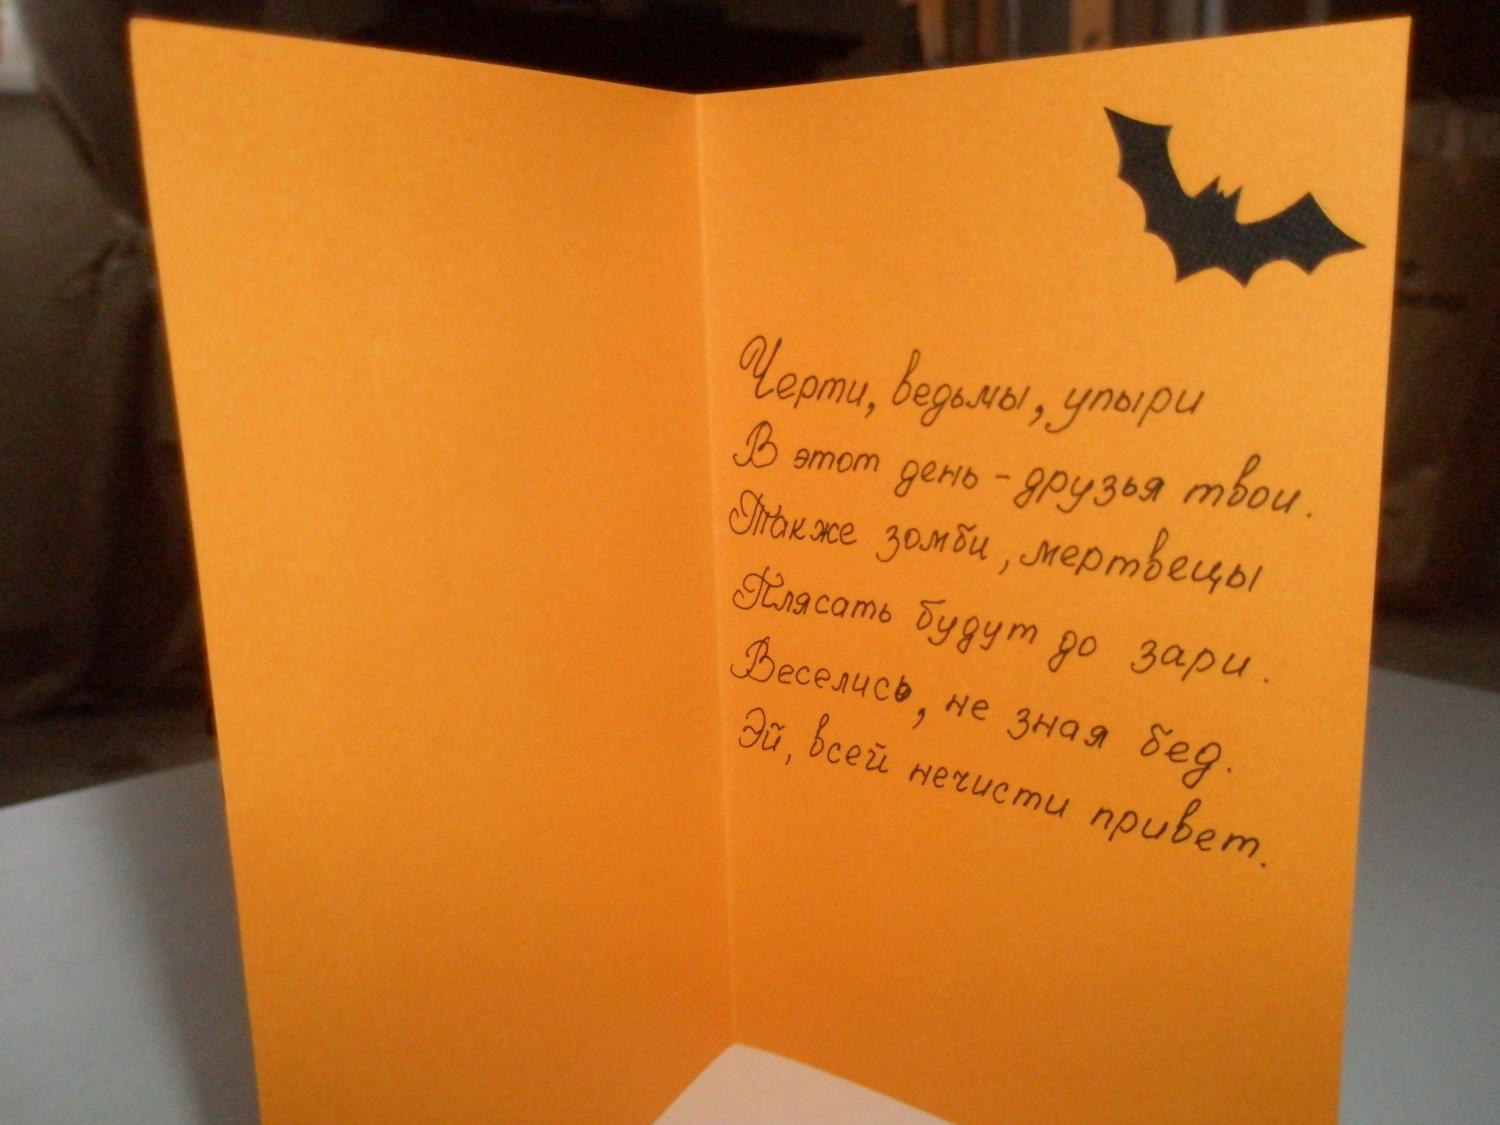 Черти, ведьмы, упыри
В этот день - друзья твои.
Также зомби, мертвецы
Плясать будут до зари.
Веселись, не зная бед.
Эй, всей нечисти привет.